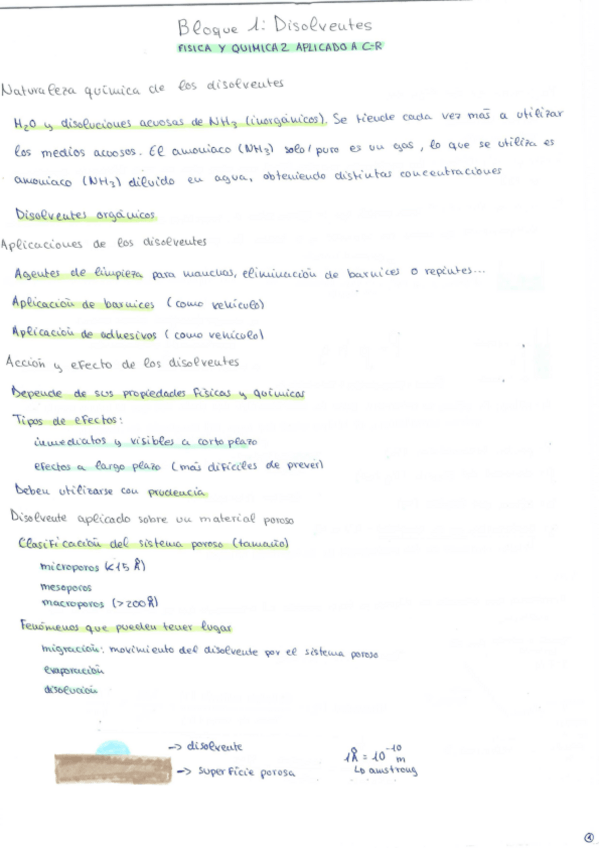 Bloque 1: Disolventes
FISICA Y QUIMICA 2 APLICADO A C-R
Naturaleza química de los disolventes
H₂O y disoluciones acuosas de NH₃ (inorgánicos). Se tiende cada vez más a utilizar
los medios acuosos. El amoniaco (NH₃) solo/puro es un gas, lo que se utiliza es
amoniaco (NH₃) diluido en agua, obteniendo distintas concentraciones
Disolventes orgánicos.
Aplicaciones de los disolventes
Agentes de limpieza para manchas, eliminación de barnices o repintes...
Aplicación de barnices (como vehículo)
Aplicación de adhesivos (como vehículo)
Acción y efecto de los disolventes
Depende de sus propiedades físicas y químicas
Tipos de efectos:
inmediatos y visibles a corto plazo
efectos a largo plazo (más difíciles de prever)
Deben utilizarse con prudencia
Disolvente aplicado sobre un material poroso
Clasificación del sistema poroso (tamaño)
microporos (<15 Å)
mesoporos
macroporos (>200Å)
Fenómenos que pueden tener lugar
migración: movimiento del disolvente por el sistema poroso
evaporación
disolución
-> disolvente
-> superficie porosa
1Å = 10⁻¹⁰ m
↳ amstrong
1